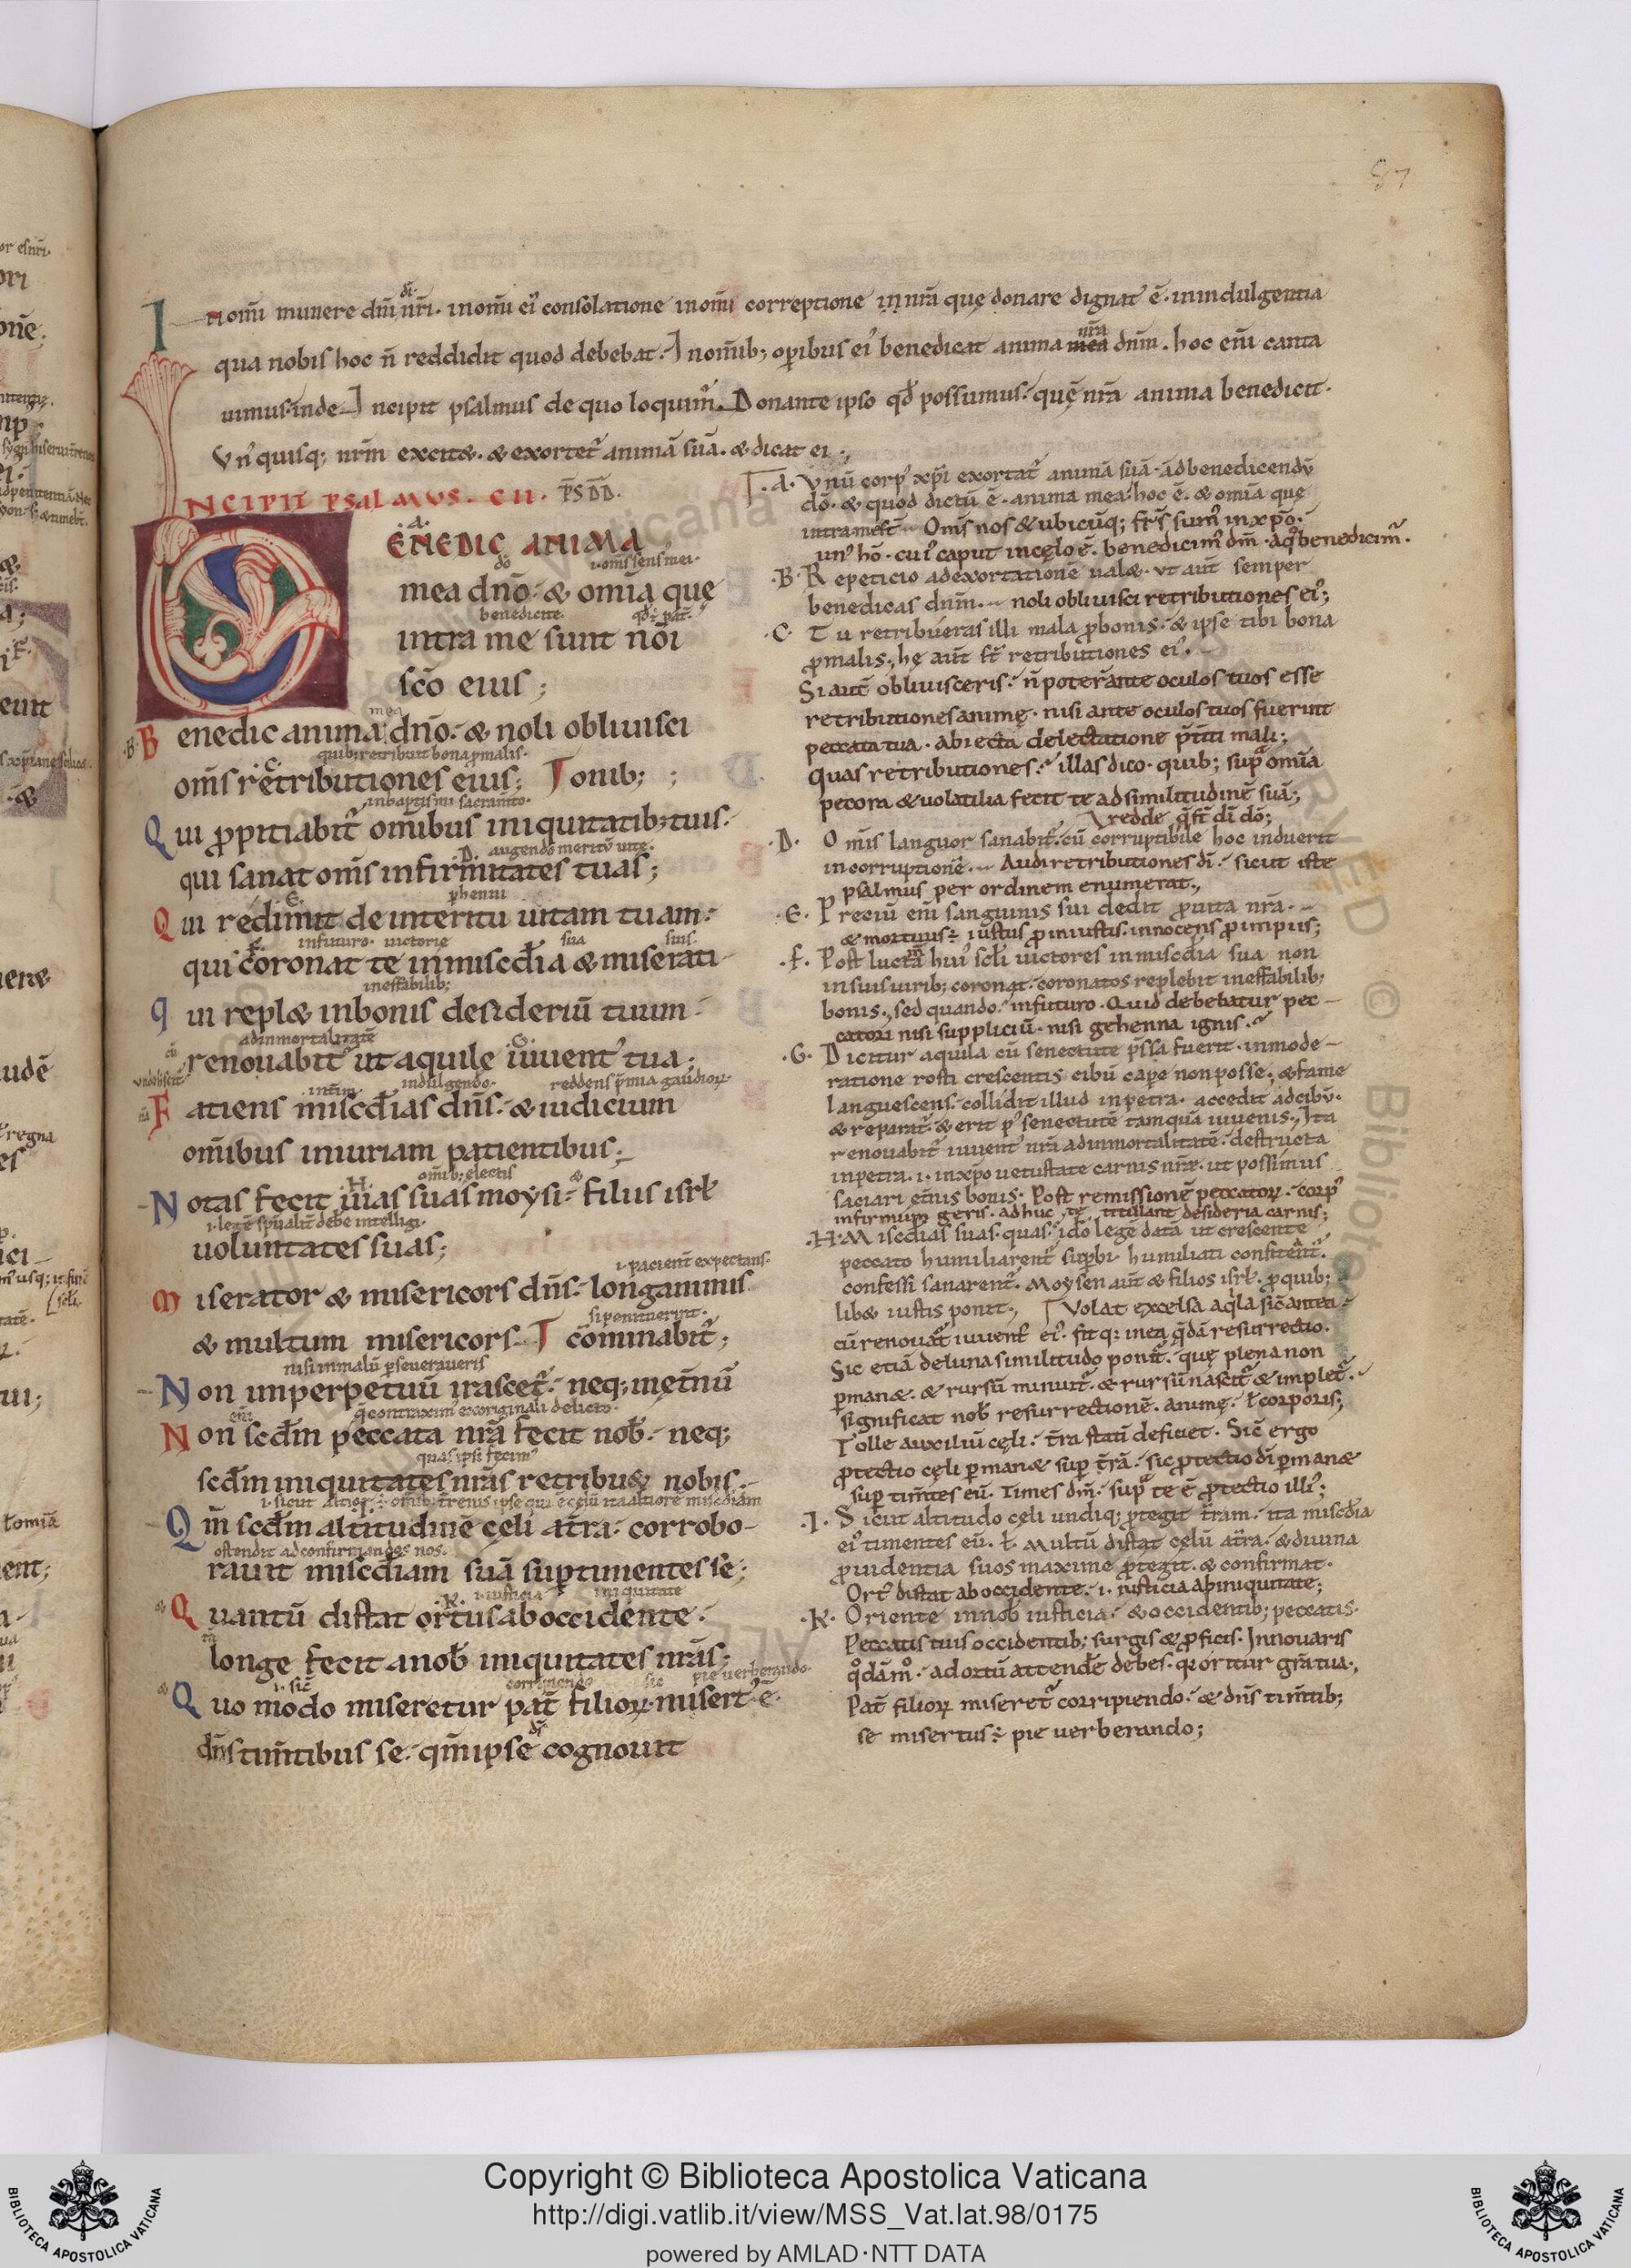 87
In om̄i munere dn̄i di nr̄i. in om̄i ei' consolatione in om̄i correptione in nr̄a quę donare dignat' ē. in indulgentia
qua nobis hoc n̄ reddidit quod debebat. In om̄ib; operibus ei' benedicat anima mea nr̄a dnm̄. hoc eni̅ canta
uimus. inde Incipit psalmus de quo loquim'. Donante ipso qd̄ possumus. quę nr̄a anima benedicit.
Vn'quisq; nr̄m excitæ. & exortet' animā suā. & dicat ei.,
INCIPIT PSALMVS. CII. P̄S D̄D̄.
.A.
ENEDIC ANIMA
do i. om̄s sens' mei.
mea dn̄o. & om̄ia que
benedicite.
intra me sunt nōi
sc̄o eius;
mea
.B. Benedic anima dn̄o. & noli obliuisci
quib; retribuit bona p malis.
.C.
om̄s retributiones eius; Tonib; ;
in baptismi sacram̄to.
Qui ppitiabit' om̄ibus iniquitatib; tuis.
.D. augendo meritū uitę.
qui sanat om̄s infirmitates tuas;
phenni
.E.
Qui redimit de interitu uitam tuam.
.F. in futuro. uictorię sua suis.
qui coronat te in misc̄dia & miserati
ineffabilib;
qui replæ in bonis desideriū tuum.
ad inmortalitatē .G.
renouabit' ut aquilę iuuent' tua;
int̄im indulgendo. reddens p̄mia gaudior̄.
Fatiens misc̄dias dn̄s. & iudicium
om̄ibus iniuriam patientibus;
.H. om̄ib; electis &
Notas fecit uias suas moysi. filiis isrł
i. legē sp̄ualit' debē intelligi.
uoluntates suas;
i. pacient' expectans.
Miserator & misericors dn̄s. longanimis
si penituerint.
& multum misericors. T cōminabit';
nisi in malū pseueraueris
Non in perpetuū irascet'. neq; in ęt̄nū
eni̅ q̄ contraxim' ex originali delicto.
Non sc̄dm peccata nr̄a fecit nob̄. neq;
quas ipsi fecim'
sc̄dm iniquitates nr̄as retribuæ nobis.
Qm̄ sc̄dm altitudinē cęli at̄ra. corrobo-
ostendit ad confirmandos nos.
rauit misc̄diam suā sup timentes se;
.K. i. iusticia iniquitate
Quantū distat ortus ab occidente.
longe fecit a nob̄ iniquitates nr̄as;
i. sic̄ corripiendo sic pie uerberando.
Quo modo miseretur pat̄ filior̄. misert' ē.
di
dn̄s tim̄tibus se. qm̄ ipse cognouit
.A. Vnū corp' xp̄i exortat' animā suā. ad benedicendū
dō. & quod dictū ē. anima mea. hoc ē. & om̄ia quę
intra me st̄. Om̄s nos & ubicūq; fr̄s sum' in xp̄o.
un' hō. cui' caput in cęlo ē. benedicim' dm̄. a q° benedicim'.
.B. Repeticio ad exortationē ualæ. ut aut̄ semper
benedicas dnm̄. noli obliuisci retributiones ei';
.C. Tu retribueras illi mala p bonis. & ipse tibi bona
p malis., hę aut̄ st̄ retributiones ei'.
Si aut̄ obliuisceris. n̄ poter ante oculos tuos esse
retributiones animę. nisi ante oculos tuos fuerint
peccata tua. abiecta delectatione p̄t̄iti mali;
quas retributiones. illas dico. quib; sup̄ om̄ia
pecora & uolatilia fecit te ad similitudinē suā;
redde q̄ st̄ di dō;
.D. Om̄is languor sanabit'. cū corruptibile hoc induerit
incorruptionē. Audi retributiones di. sicut iste
psalmus per ordinem enumerat.,
.E. Preciū eni̅ sanguinis sui dedit p uita nr̄a.
& mortuus ÷ iustus p iniustis. innocens p impiis;
.F. Post luctā hui' sc̄li uictores in misc̄dia sua non
in suis uirib; coronat. coronatos replebit ineffabilib;
bonis., sed quando. in futuro. Quid debebatur pec-
catori nisi suppliciū. nisi gehenna ignis.
.G. Dicitur aquila cū senectute pssa fuerit. in mode-
ratione rostri crescentis cibū cape non posse; & fame
languescens. collidit illud in petra. accedit ad cibū.
& reparat'. & erit p' senectutē tamquā iuuenis., Ita
renouabit' iuuent' nr̄a ad inmortalitatē. destructa
in petra. i. in xp̄o uetustate carnis nr̄æ. ut possimus
saciari et̄nis bonis. Post remissionē peccator̄. corp'
infirmum geris. adhuc te titillant desideria carnis;
.H. Misc̄dias suas. quas. ido legē datā ut crescente
peccato humiliarent' supbi. humiliati confitent'.
confessi sanarent'. Moysen aut̄ & filios isrł. p quib;
libæ iustis ponit., Volat excelsa aq̄la sic̄ antea.
cū renouat' iuuent' ei'. fit q; in ea q̄dā resurrectio.
Sic etiā de luna similitudo ponit'. quę plena non
pmanæ. & rursū minuit'. & rursū nascit' & implet'.
significat nob̄ resurrectionē. animę. ł corporis;
Tolle auxiliū cęli. t̄ra statī deficiet. Sic̄ ergo
ptectio cęli pmanæ sup t̄rā. sic ptectio di pmanæ
sup tim̄tes eū. Times dm̄. sup̄ te ē ptectio illi';
.I. Sicut altitudo cęli undiq; ptegit t̄ram. ita misc̄dia
ei' timentes eū. ł. Multū distat cęlū a t̄ra. & diuina
puidentia suos maxime ptegit. & confirmat.
Ort' distat ab occidente. i. iusticia ab iniquitate;
.K. Oriente in nob̄ iusticia. & occidentib; peccatis.
Peccatis tuis occidentib; surgis & pficis. Innouaris
q°dām°. ad ortū attendē debes. q oritur gr̄a tua.,
Pat̄ filior̄ miseret' corripiendo. & dn̄s tim̄tib;
se misertus ÷ pie uerberando;
Copyright © Biblioteca Apostolica Vaticana
http://digi.vatlib.it/view/MSS_Vat.lat.98/0175
powered by AMLAD·NTT DATA
BIBLIOTECA APOSTOLICA VATICANA
BIBLIOTECA APOSTOLICA VATICANA